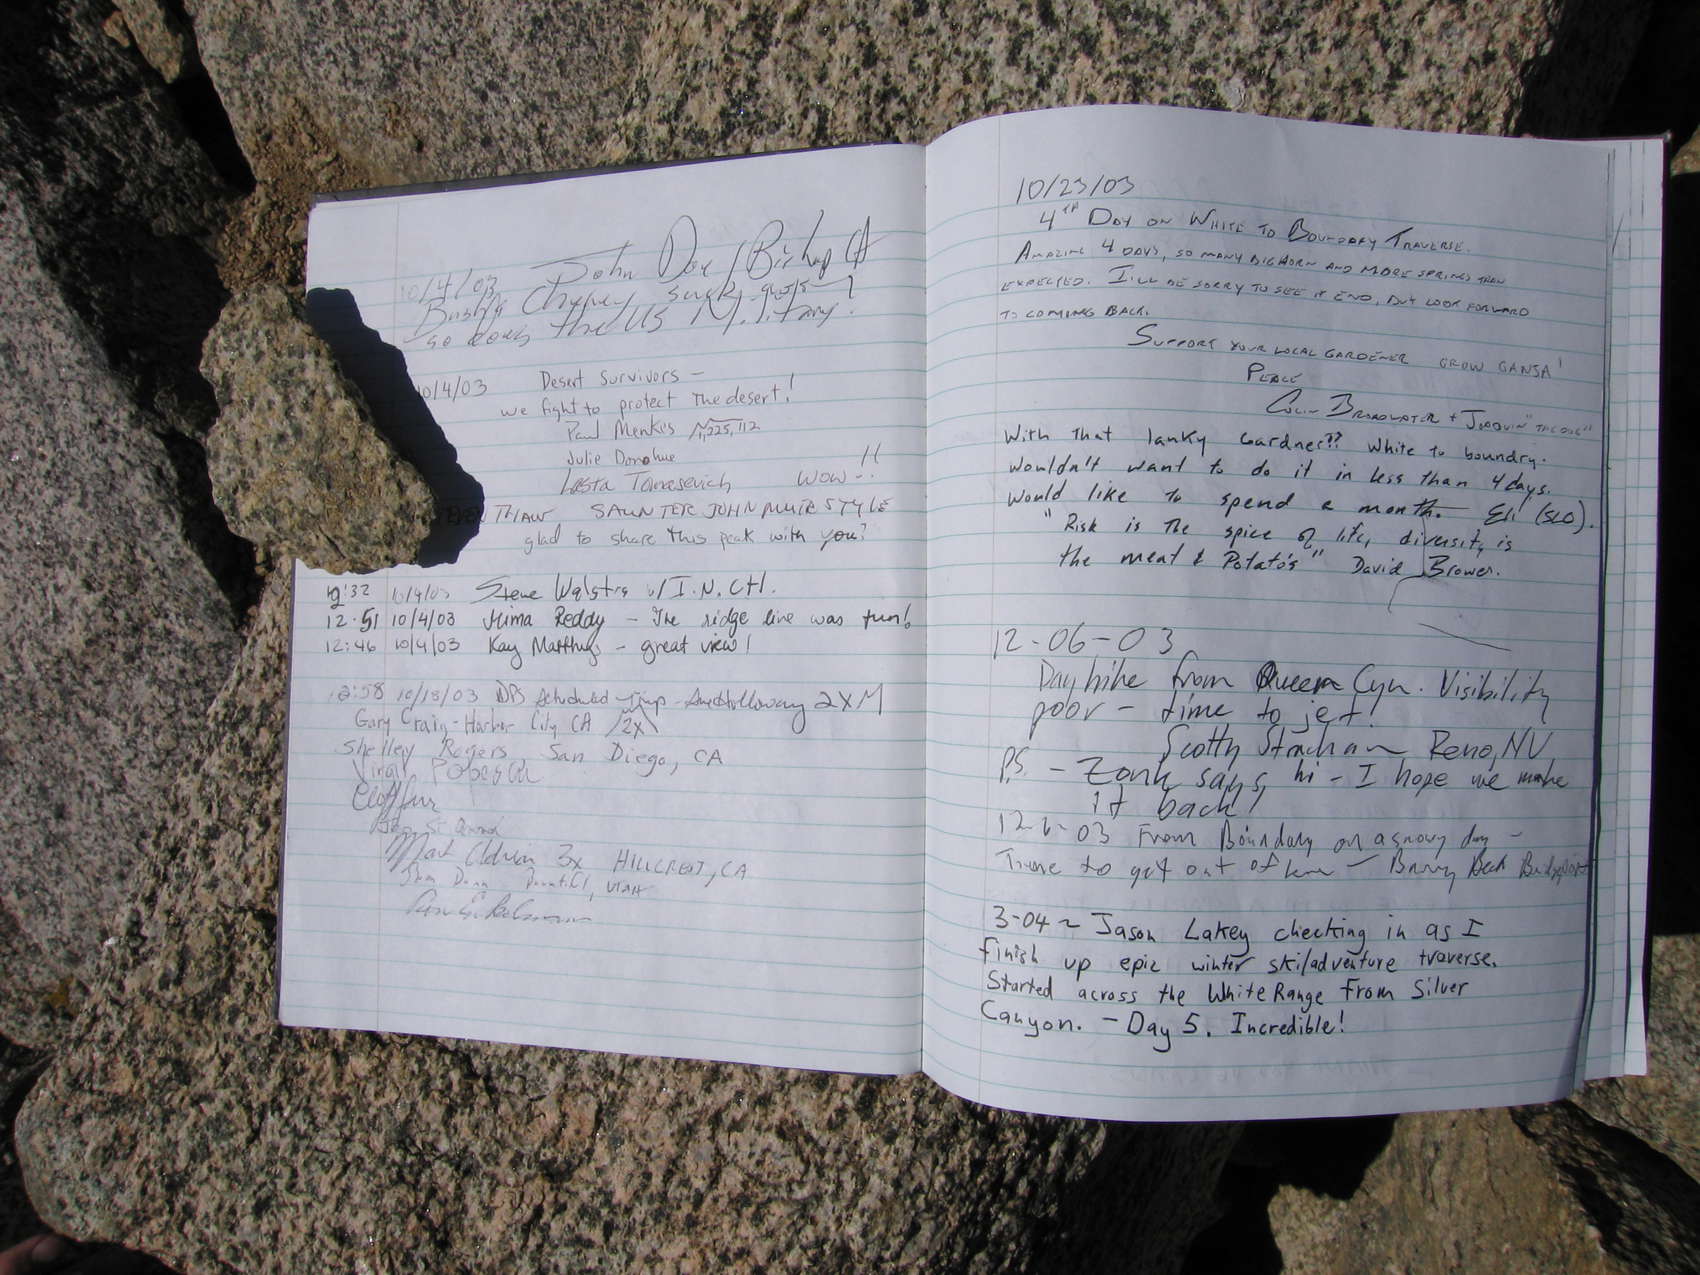 10/4/03 John Doe / Bishop CA
Bush/Cheney suck
so does the US Military.
10/4/03 Desert Survivors –
we fight to protect the desert!
Paul Menkes
Julie Donohue
Tomasevich WOW !!
THAW SAUNTER JOHN MUIR STYLE
glad to share this peak with you!
10/4/03 Steve w/ I.N.
12:51 10/4/03 Hima Reddy – The ridge line was fun!
12:46 10/4/03 Kay – great view!
12:58 10/18/03 DPS Scheduled Trip – Sue Holloway 2X M
Gary Craig – Harbor City CA 2X
Shelley Rogers San Diego, CA
Virgil
Mark Adrian 3x HILLCREST, CA
Dunn UTAH
10/23/03
4TH DAY ON WHITE TO BOUNDARY TRAVERSE.
AMAZING 4 DAYS, SO MANY BIGHORN AND MORE SPRINGS THAN
EXPECTED. I'LL BE SORRY TO SEE IT END, BUT LOOK FORWARD
TO COMING BACK.
SUPPORT YOUR LOCAL GARDENER GROW GANJA!
PEACE
COLIN BROADWATER + JOAQUIN "THE DOG"
With that lanky Gardner?? White to boundry.
Wouldn't want to do it in less than 4 days.
Would like to spend a month. Eli (SLO).
"Risk is the spice of life, diversity is
the meat & Potato's" David Brower.
12-06-03
Day hike from Queen Cyn. Visibility
poor – time to jet!
Scotty Strachan Reno, NV
P.S. – Zonk says hi – I hope we make
it back!
12-6-03 From Boundary on a snowy day –
Time to get out of here – Barry Beck Bridgeport
3-04 ~ Jason Lakey checking in as I
finish up epic winter ski/adventure traverse.
Started across the White Range from Silver
Canyon. – Day 5. Incredible!